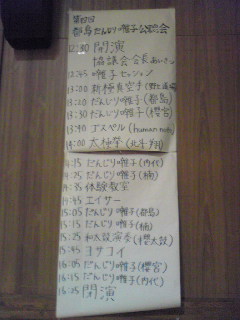 都島だんじり囃子公演会
12:30 開演
協議会会長あいさつ
12:45 囃子セッション
13:00 新極真空手
13:10 だんじり囃子(都島)
13:30 だんじり囃子(櫻宮)
13:40 ゴスペル(human note)
14:00 太極拳
14:15 だんじり囃子(内代)
14:25 だんじり囃子(楠)
14:35 体験教室
エイサー
15:05 だんじり囃子(都島)
15:15 だんじり囃子(楠)
15:25 和太鼓演奏(櫻太鼓)
15:45 ヨサコイ
16:05 だんじり囃子(櫻宮)
16:15 だんじり囃子(内代)
閉演